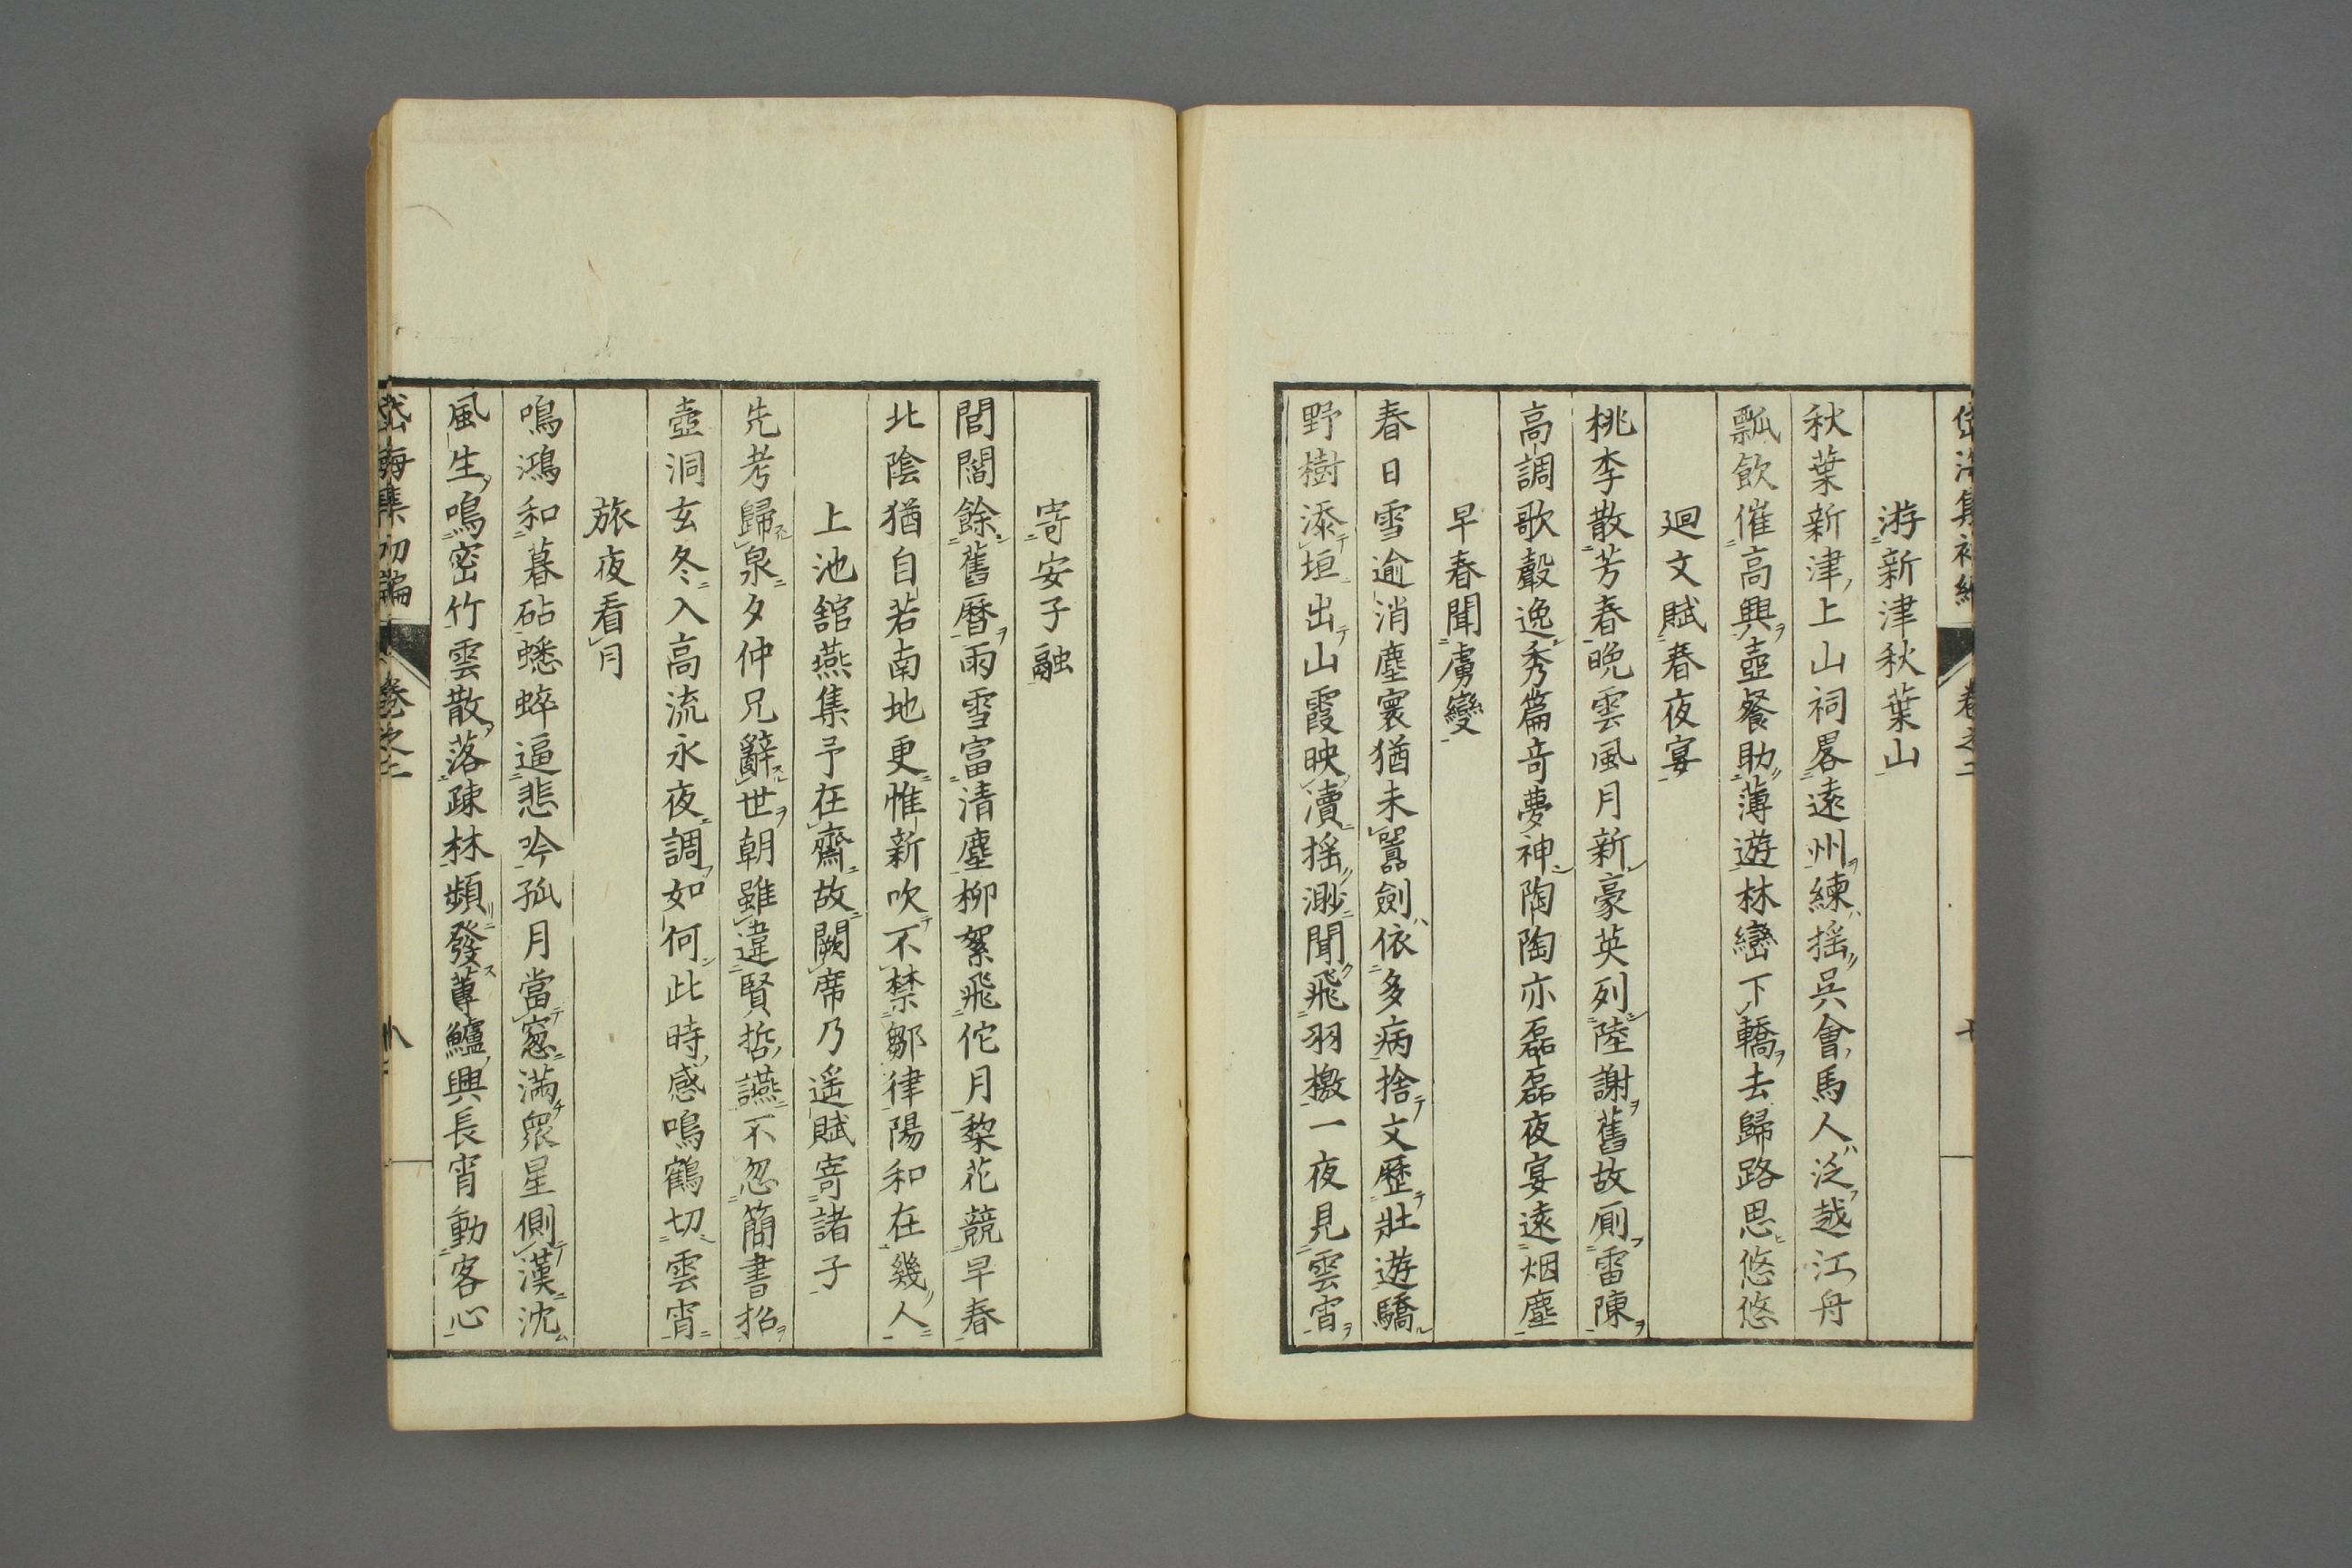 卷之二
游新津秋葉山
秋葉新津上山祠畧遠州練搖吳會馬人泛越江舟
瓢飲催高興壺餐助薄遊林巒下轎去歸路思悠悠
廻文賦春夜宴
桃李散芳春晩雲風月新豪英列陸謝舊故厠雷陳
高調歌轂逸秀篇奇夢神陶陶亦磊磊夜宴遠烟塵
早春聞虜變
春日雪逾消塵寰猶未囂劍依多病捨文歷壯遊驕
野樹添垣出山霞映瀆搖渺聞飛羽檄一夜見雲宵
寄安子融
閭閻餘舊曆雨雪富清塵柳絮飛佗月棃花競早春
北陰猶自若南地更惟新吹不禁鄒律陽和在幾人
上池舘燕集予在齋故闕席乃遥賦寄諸子
先考歸泉夕仲兄辭世朝雖違賢哲讌不忽簡書招
壺洞玄冬入高流永夜調如何此時感鳴鶴切雲宵
旅夜看月
鳴鴻和暮砧蟋蟀逼悲吟孤月當窓滿衆星側漢沈
風生鳴密竹雲散落疎林頻發蓴鱸興長宵動客心
岱海集初編 卷之二